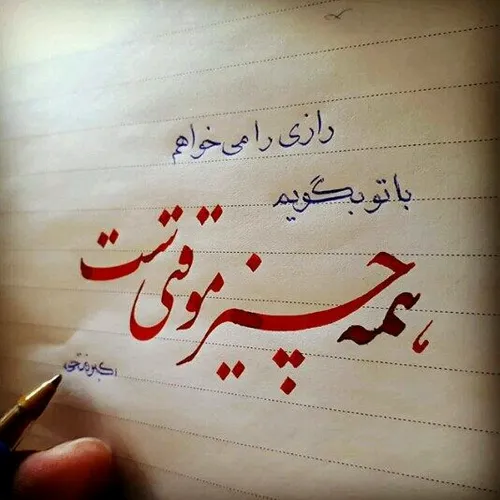 رازی را می خواهم
با تو بگویم
همه چیز موقتی ست
اکبر فتحی